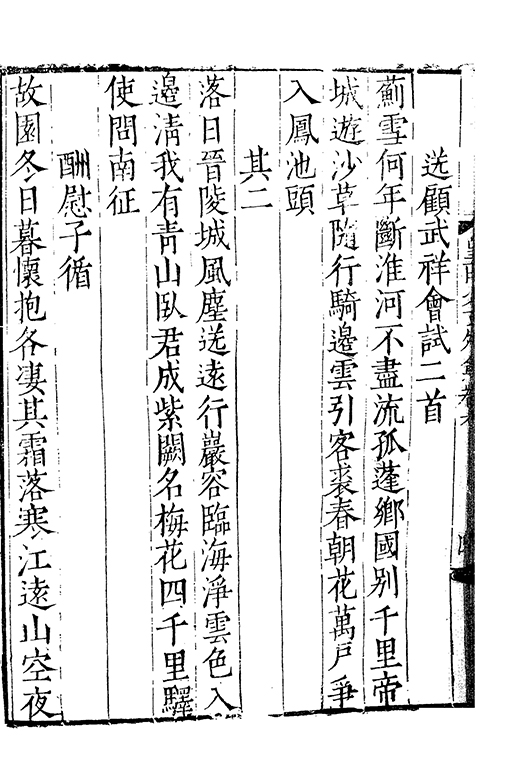 送顧武祥會試二首
薊雪何年斷淮河不盡流孤蓬鄉國别千里帝
城遊沙草隨行騎邊雲引客裘春朝花萬戶爭
入鳳池頭
其二
落日晉陵城風塵送遠行巖容臨海淨雲色入
邊清我有青山臥君成紫闕名梅花四千里驛
使問南征
酬慰子循
故園冬日暮懷抱各淒其霜落寒江遠山空夜